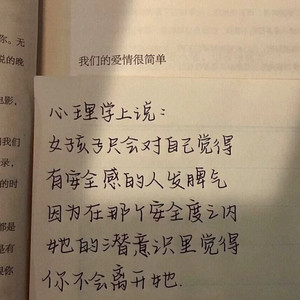 你。无
说的晚
我们的爱情很简单
电影，
心理学上说：
女孩子只会对自己觉得
有安全感的人发脾气
因为在那个安全度之内
她的潜意识里觉得
你不会离开她.
录，
的时
都是
是有